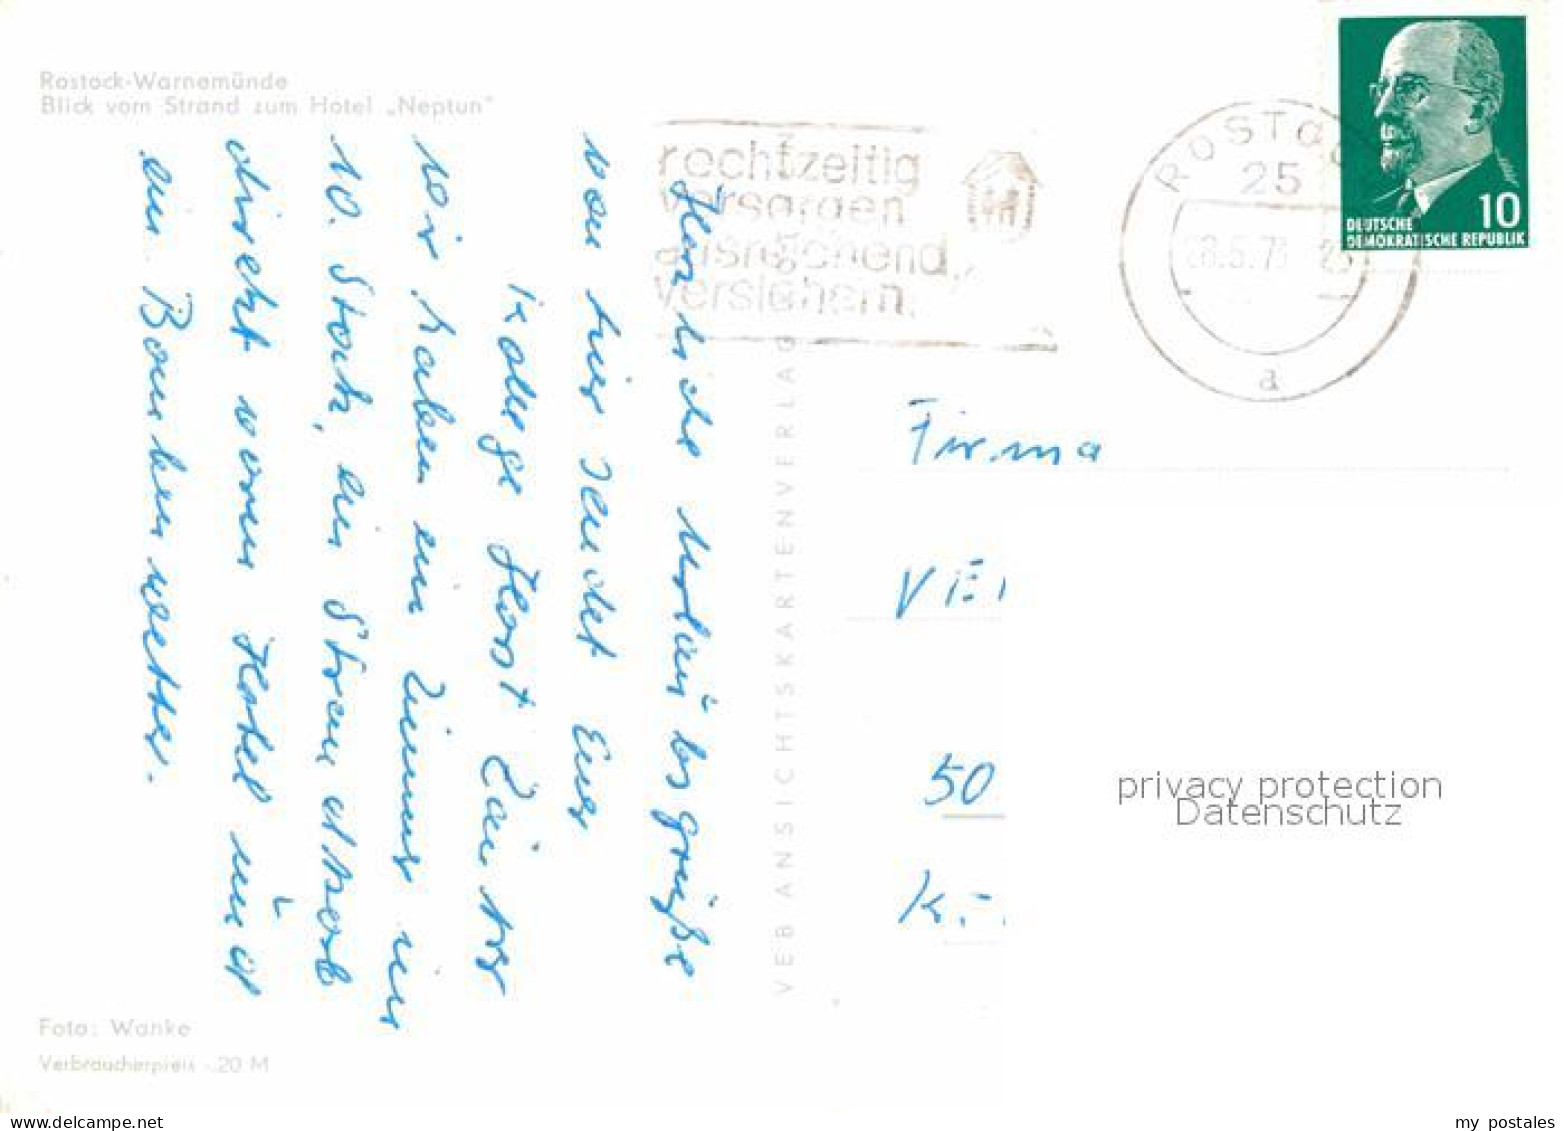 Rostock-Warnemünde
Blick vom Strand zum Hotel „Neptun"
rechtzeitig
versorgen
ausreichend
versichern.
ROSTOCK
25
a
10
DEUTSCHE
DEMOKRATISCHE REPUBLIK
Herzliche Urlaubsgrüße
von hier sendet Euer
Kollege Horst
Wir haben ein Zimmer im
10. Stock, ein Strandkorb
direkt vorm Hotel und
ein Bombenwetter.
VEB ANSICHTSKARTENVERLAG
Firma
VE
50
K.-
privacy protection
Datenschutz
Foto: Wanke
Verbraucherpreis -.20 M
my postales